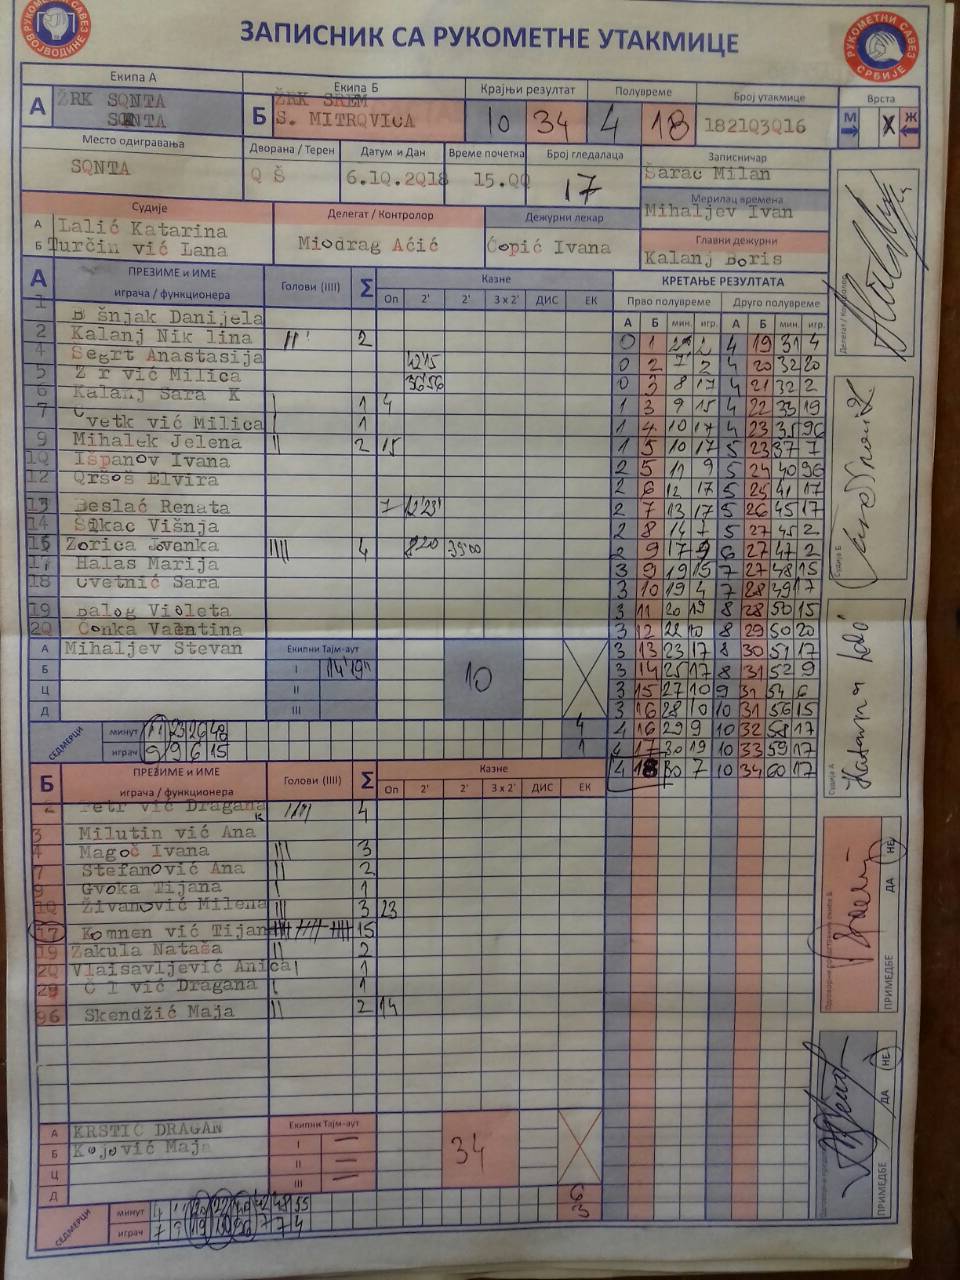 РУКОМЕТНИ САВЕЗ ВОЈВОДИНЕ
ЗАПИСНИК СА РУКОМЕТНЕ УТАКМИЦЕ
РУКОМЕТНИ САВЕЗ СРБИЈЕ
Екипа А
Екипа Б
Крајњи резултат
Полувреме
Број утакмице
Врста
А
ŽRK SQNTA
SQNTA
Б
ŽRK SREM
S. MITRQVICA
10 34 4 18
1821Q3Q16
М X Ж
Место одигравања
Дворана / Терен
Датум и Дан
Време почетка
Број гледалаца
Записничар
SQNTA
Q Š
6.1Q.2Q18
15.QQ
17
Šarac Milan
Мерилац времена
Mihaljev Ivan
Судије
Делегат / Контролор
Дежурни лекар
Главни дежурни
А Lalić Katarina
Б Turčin vić Lana
Miodrag Aćić
Ćopić Ivana
Kalanj Boris
А
ПРЕЗИМЕ и ИМЕ
играча / функционера
Голови (IIII)
Σ
Казне
Оп 2' 2' 3 x 2' ДИС ЕК
КРЕТАЊЕ РЕЗУЛТАТА
Прво полувреме Друго полувреме
А Б мин. игр. А Б мин. игр.
1 B šnjak Danijela
2 Kalanj Nik lina 2
4 Segrt Anastasija
5 Z r vić Milica
6 Kalanj Sara K 1 4
7 Cvetk vić Milica 1
9 Mihalek Jelena 2 15
1Q Išpanov Ivana
12 Qršoš Elvira
13 Beslać Renata
14 Sikac Višnja
15 Zorica Jovanka 4
17 Halas Marija
18 Cvetnić Sara
19 Balog Violeta
2Q Conka Valentina
0 2 7 2 4 20 32 20
0 3 8 17 4 21 32 2
1 3 9 15 4 22 33 19
1 4 10 17 4 23 35 96
1 5 10 17 5 23 37 7
2 5 11 9 5 24 40 96
2 6 12 17 5 25 41 17
2 7 13 17 5 26 45 17
2 8 14 7 5 27 45 2
2 9 17 9 6 27 47 2
3 9 19 15 7 27 48 15
3 10 19 4 7 28 49 17
3 11 20 19 8 28 50 15
3 12 22 10 8 29 50 20
3 13 23 17 8 30 51 17
3 14 25 17 8 31 52 9
3 15 27 10 9 31 54 6
3 16 28 10 10 31 56 15
4 16 29 9 10 32 58 17
4 17 30 19 10 33 59 17
4 18 30 7 10 34 60 17
А Mihaljev Stevan
Б
Ц
Д
Екипни Тајм-аут
I 14'19"
II
III
10
4
1
СЕДМЕРЦИ
минут 11 23 26 48
играч 9 9 6 15
Б
ПРЕЗИМЕ и ИМЕ
играча / функционера
Голови (IIII)
Σ
Казне
Оп 2' 2' 3 x 2' ДИС ЕК
2 Petr vić Dragana K 4
3 Milutin vić Ana
4 Magoč Ivana 3
7 Stefanović Ana 2
9 Gvoka Tijana 1
1Q Živanović Milena 3 23
17 Komnen vić Tijan 15
19 Zakula Nataša 2
2Q Vlaisavljević Anica 1
29 Č l vić Dragana 1
96 Skendžić Maja 2 14
А KRSTIC DRAGAN
Б Kojović Maja
Ц
Д
Екипни Тајм-аут
I
II
III
34
6
3
СЕДМЕРЦИ
минут
играч
Делегат / Контролор
Судија Б
Судија А
ПРИМЕДБЕ ДА НЕ
ПРИМЕДБЕ ДА НЕ